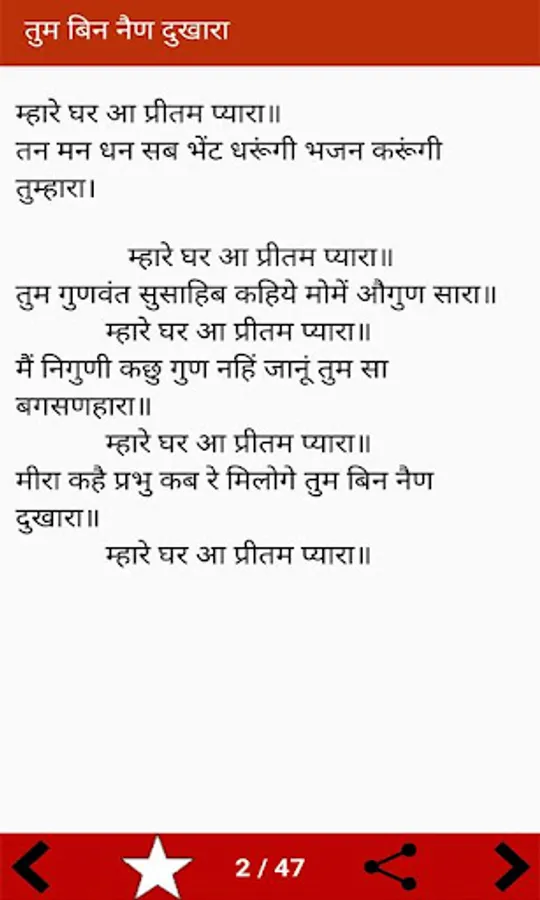 तुम बिन नैण दुखारा
म्हारे घर आ प्रीतम प्यारा॥
तन मन धन सब भेंट धरूंगी भजन करूंगी
तुम्हारा।
म्हारे घर आ प्रीतम प्यारा॥
तुम गुणवंत सुसाहिब कहिये मोमें औगुण सारा॥
म्हारे घर आ प्रीतम प्यारा॥
मैं निगुणी कछु गुण नहिं जानूं तुम सा
बगसणहारा॥
म्हारे घर आ प्रीतम प्यारा॥
मीरा कहै प्रभु कब रे मिलोगे तुम बिन नैण
दुखारा॥
म्हारे घर आ प्रीतम प्यारा॥
2 / 47